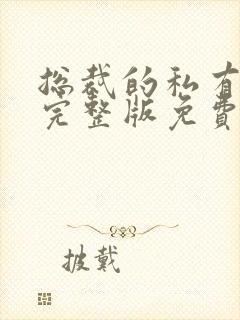 总裁的私有
完整版免费
披戴